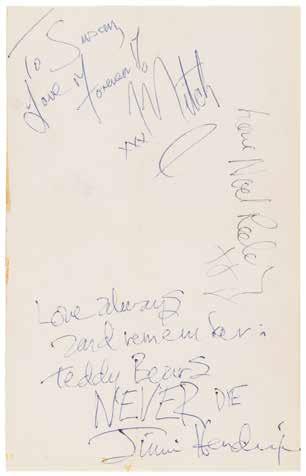 To Susan
Love
Forever
Mitch
xxx
Love Noel Redding
xx
Love always
and remember:
teddy Bears
NEVER DIE
Jimi Hendrix